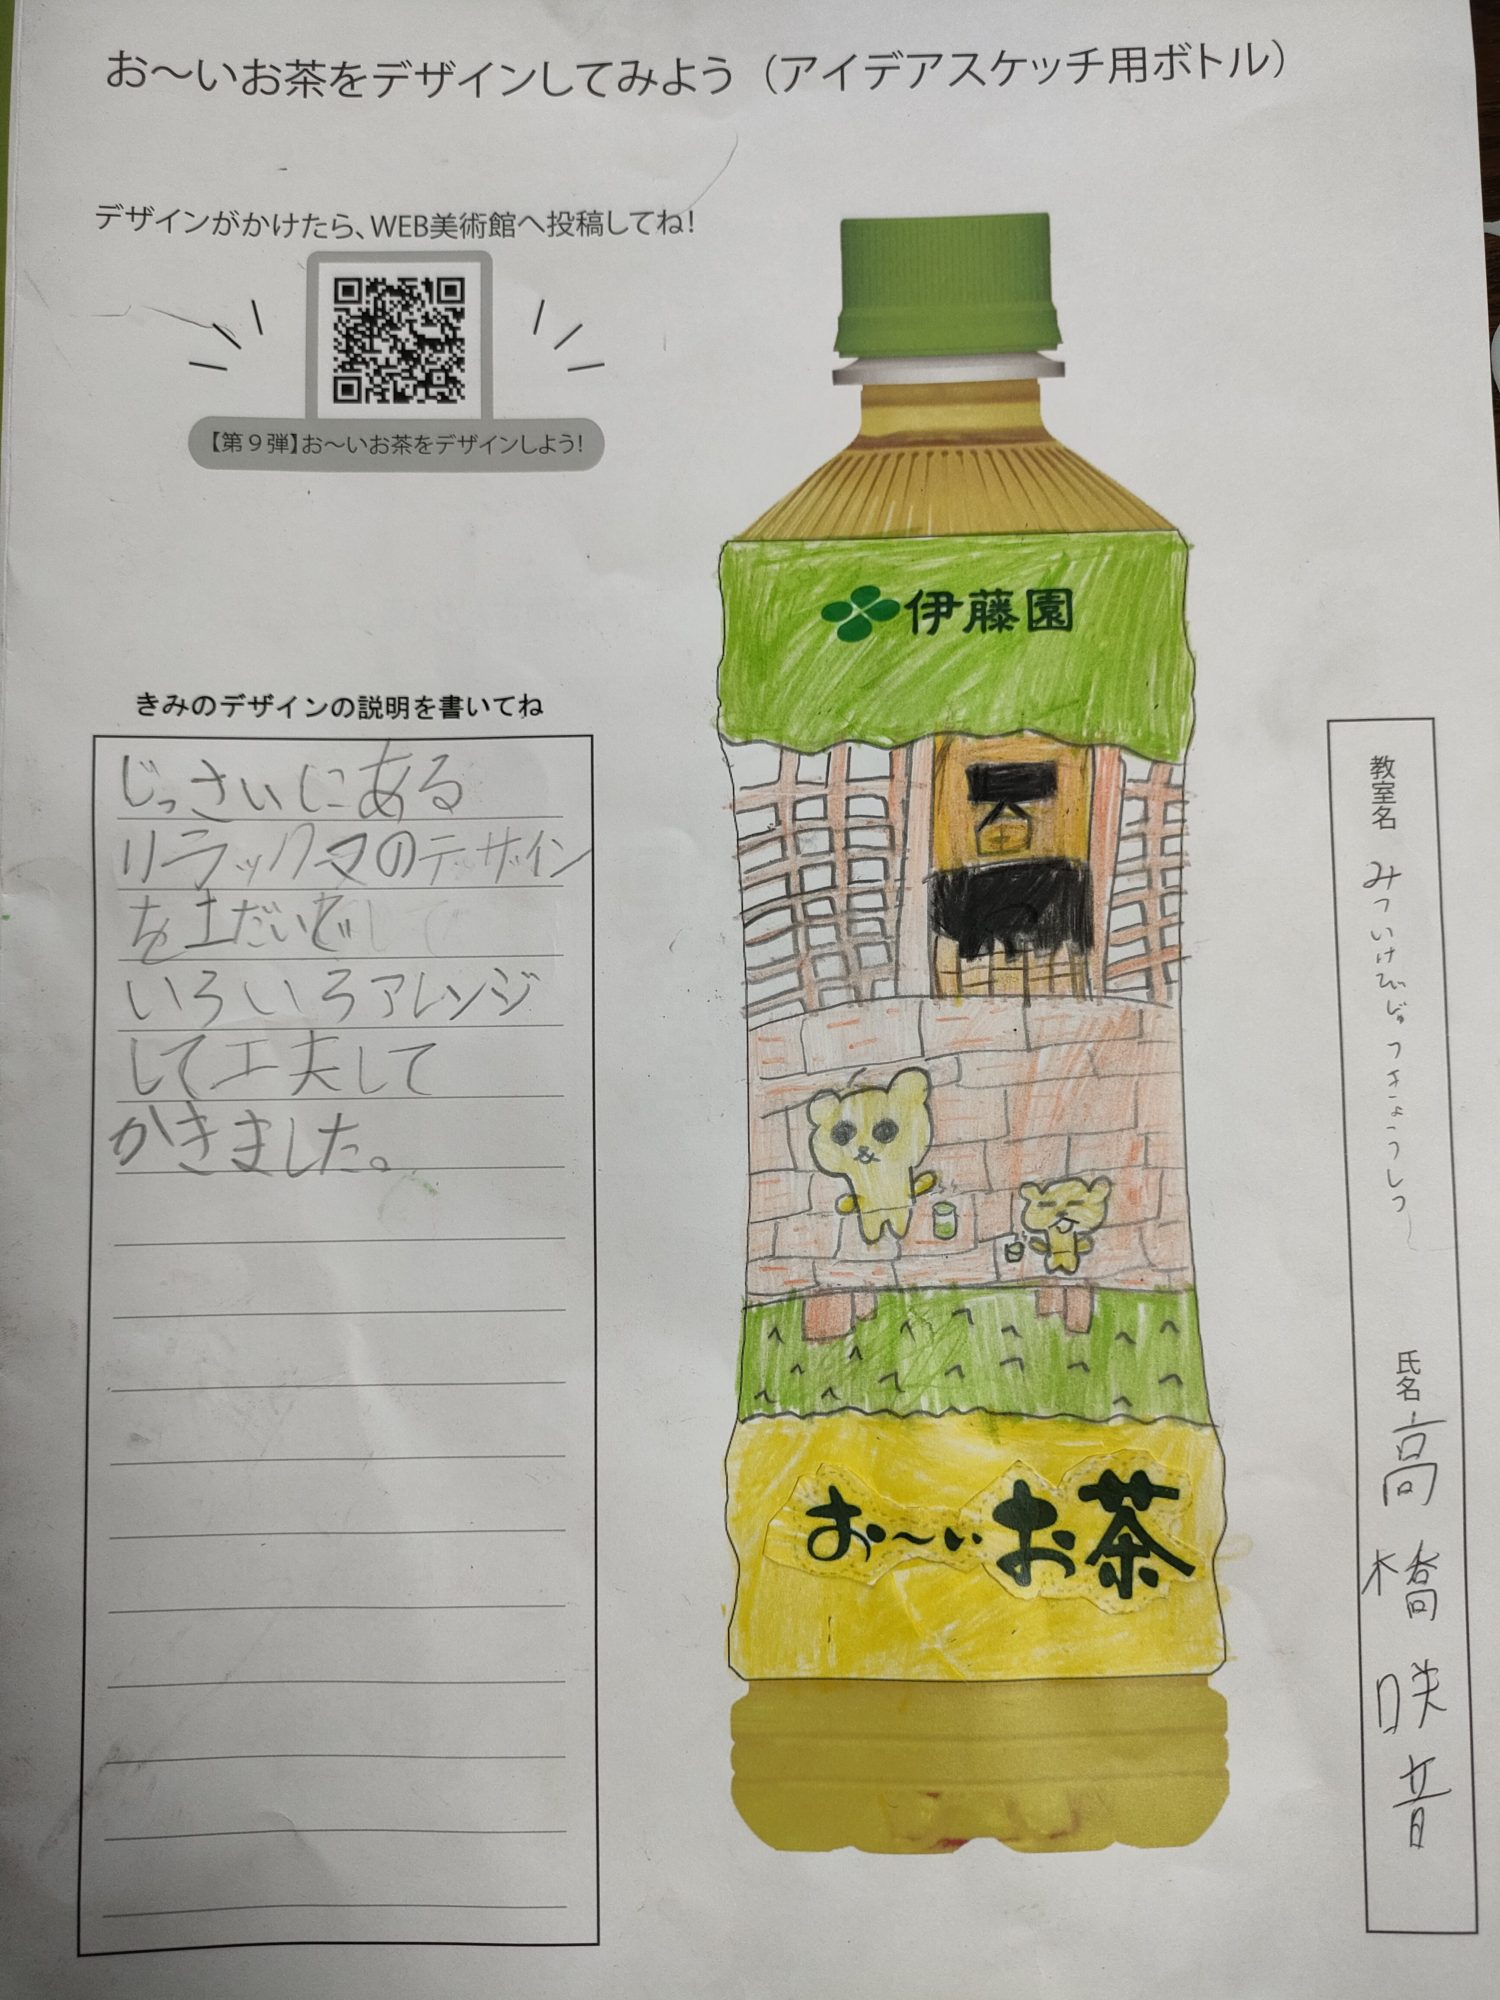 お～いお茶をデザインしてみよう（アイデアスケッチ用ボトル）
デザインがかけたら、WEB美術館へ投稿してね！
【第９弾】お～いお茶をデザインしよう！
伊藤園
きみのデザインの説明を書いてね
じっさいにある
リラックマのデザイン
を土だいに
いろいろアレンジ
して工夫して
かきました。
お～いお茶
教室名 みついけびじゅつきょうしつ
氏名 高橋咲音